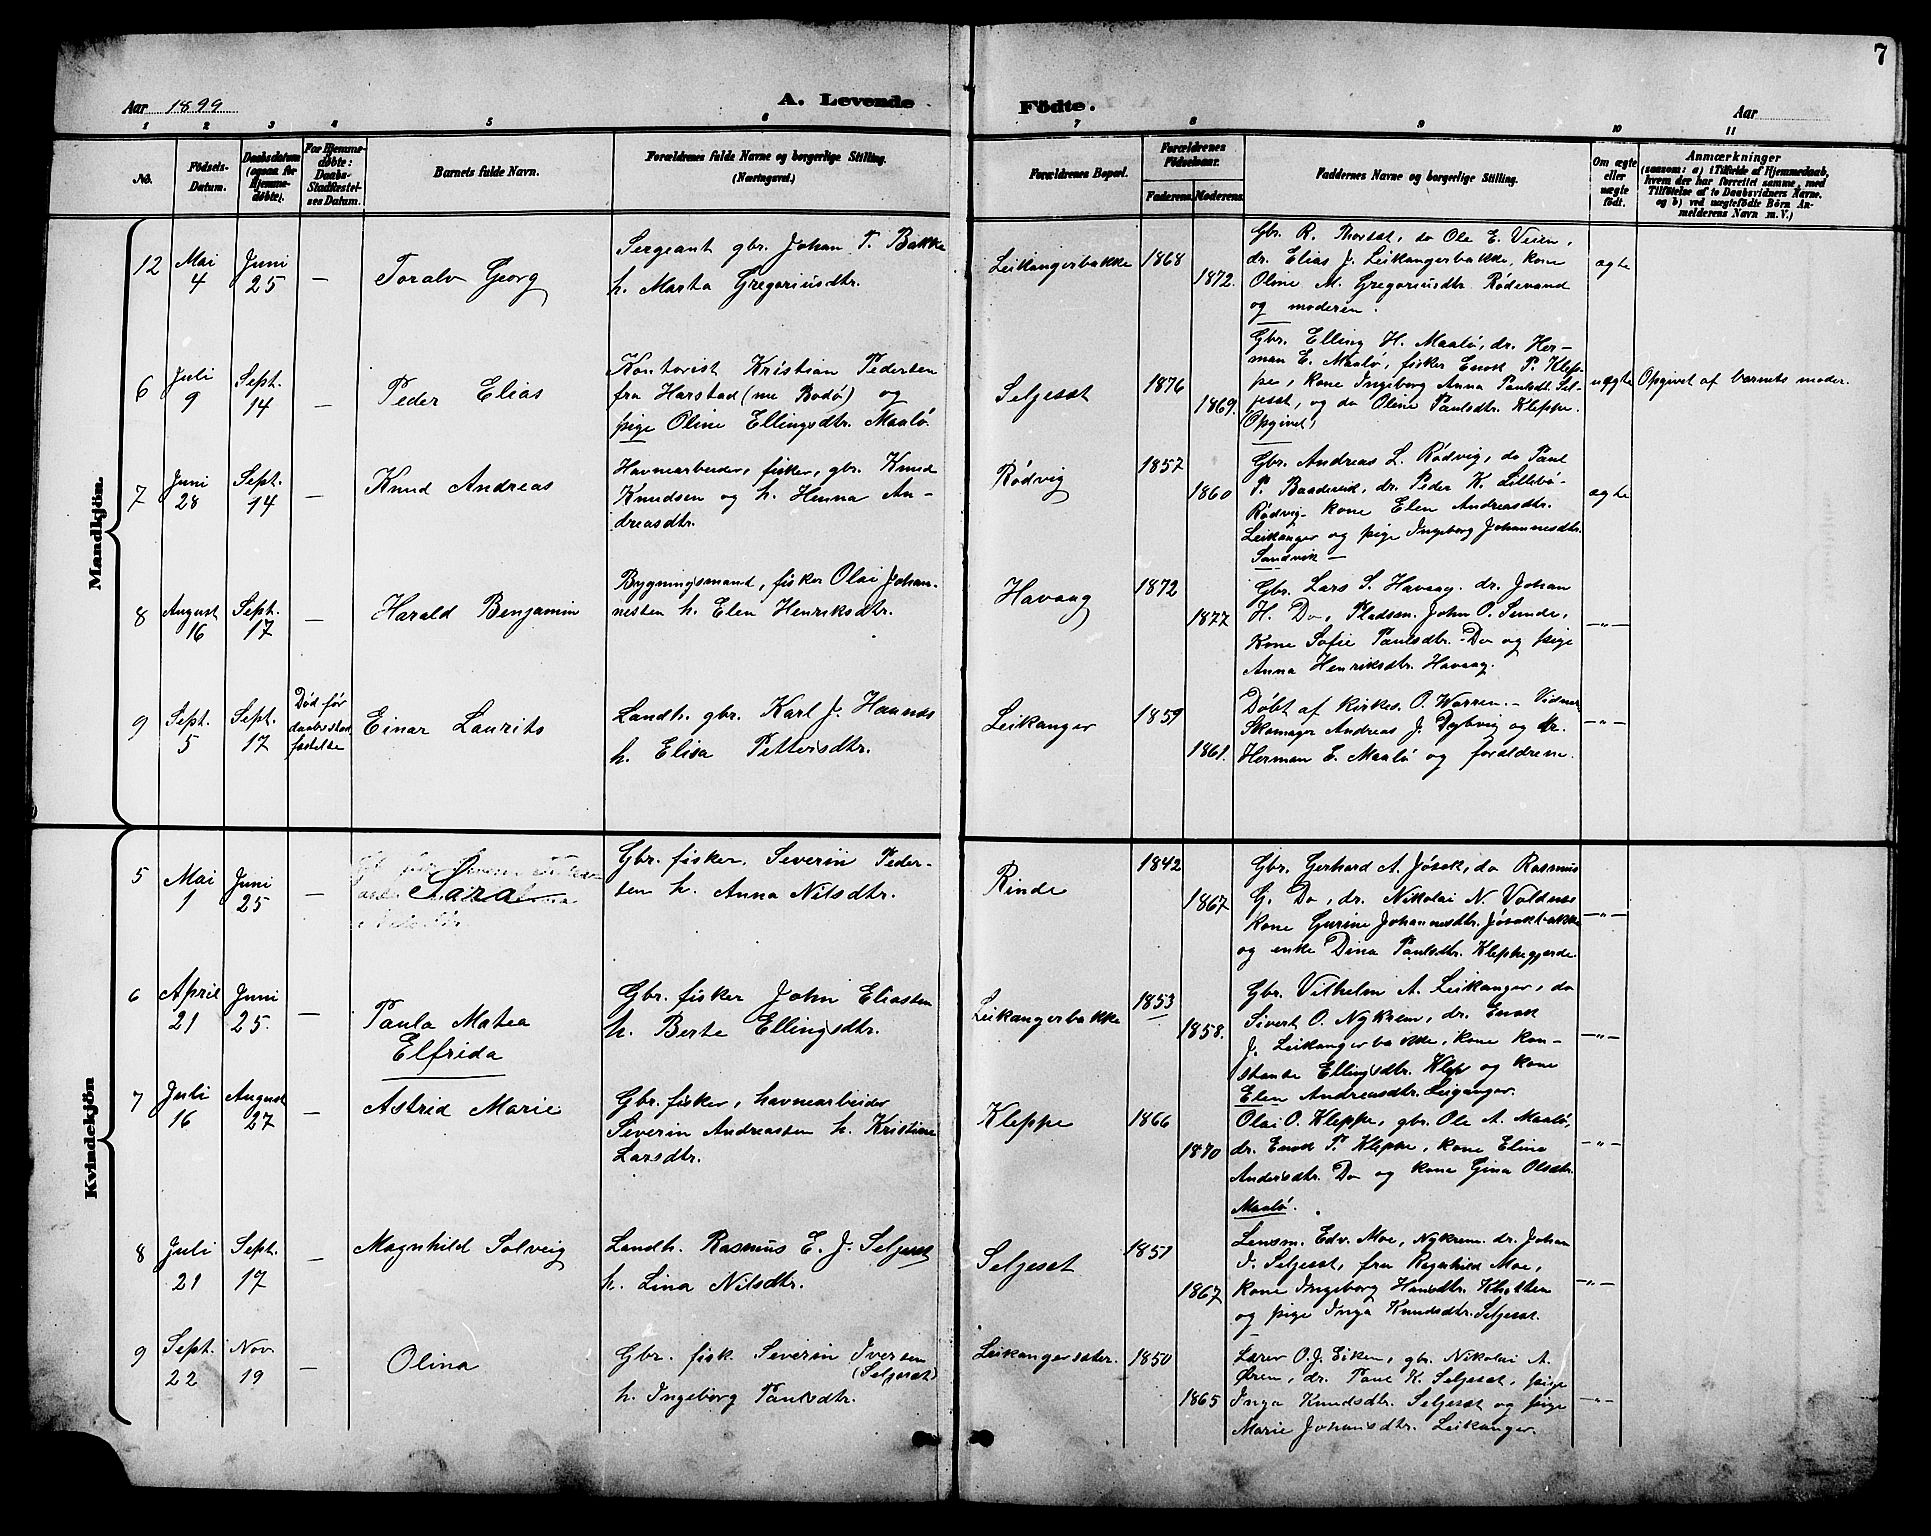 7
Aar 1899
A. Levende
Födte.
Aar
1 2 3 4 5 6 7 8 9 10 11
No.
Födsels-
Datum.
Daabsdatum
(ogsaa for
Hjemme-
døbte).
For Hjemme-
døbte:
Daabs-
Stadfæstel-
ses Datum.
Barnets fulde Navn.
Forældrenes fulde Navne og borgerlige Stilling.
(Næringsvei.)
Forældrenes Bopæl.
Forældrenes
Fødselsaar.
Faderens.
Moderens.
Faddernes Navne og borgerlige Stilling.
Om ægte
eller
uægte
født.
Anmærkninger
(saasom: a) i Tilfælde af Hjemmedaab,
hvem der har forrettet samme, med
Tilføielse af to Daabsvidners Navne,
og b) ved uægtefödte Börn An-
melderens Navn m. V.)
Mandkjön.
12
Mai
4
Juni
25
—
Toralv Georg
Sergeant gbr. Johan T. Bakke
h. Marta Gregoriusdtr.
Leikangerbakke
1868
1872.
Gbr. R. Thorset, do Ole E. Veien,
dr. Elias J. Leikangerbakke, kone
Oline M. Gregoriusdtr. Rødevand
og moderen.
ægte
6
Juli
9
Sept.
14
—
Peder Elias
Kontorist Kristian Pedersen
fra Harstad (nu Bodø) og
pige Oline Ellingsdtr. Maalø.
Seljeset
1876
1869.
Gbr. Elling H. Maalø, dr. Her-
man E. Maalø, fisker Enok P. Klep-
pe, kone Ingeborg Anna Paulsdt. Sel-
jeset, og do Oline Paulsdtr. Kleppe.
Opgivet,
uægte
Opgivet af barnets moder.
7
Juni
28
Sept.
14
—
Knud Andreas
Havnearbeider, fisker, gbr. Knud
Knudsen og h. Henna An-
dreasdtr.
Rødvig
1857
1860
Gbr. Andreas L. Rødvig, do Paul
P. Baadereid, dr. Peder K. Lillebø-
Rødvig, kone Elen Andreasdtr.
Leikanger og pige Ingeborg Johannesdtr.
Sandvik —
ægte
8
August
16
Sept.
17
—
Harald Benjamin
Bygningsmand, fisker Olai Johan-
nesten h. Elen Henriksdtr.
Havaag
1872
1877
Gbr. Lars S. Havaag, dr. Johan
H. Do, Pladsm. John O. Sunde,
Kone Sofie Paulsdtr. Do og pige
Anna Henriksdtr. Havaag.
—"—
9
Sept.
5
Sept.
17
Død før
daabsstad-
fæstelse
Einar Laurits
Landh. gbr. Karl J. Haunds
h. Elisa Pettersdtr.
Leikanger
1859
1861.
Døbt af Kirkes. O. Warren. Vidner
Skomager Andreas J. Dybvig og dr.
Herman E. Maalø og forældrene.
—"—
Kvindekjön
5
Mai
1
Juni
25
—
Sara
Gbr. fisker. Severin Peder-
sen h. Anna Nilsdtr.
Rinde
1842
1867
Gbr. Gerhard A. Jøsok, do Rasmus
G. Do, dr. Nikolai N. Voldnes
kone Gurine Johannesdtr. Jøsokbakke
og enke Dina Paulsdtr. Kleppegjerde.
—"—
6
April
21
Juni
25.
—
Paula Matea
Elfrida
Gbr. fisker John Eliassen
h. Berte Ellingsdtr.
Leikangerbakke
1853
1858.
Gbr. Vilhelm A. Leikanger, do
Sivert O. Nykrem, dr. Enok
J. Leikangerbakke, kone Kon-
stanse Ellingsdtr. Klep og kone
Elen Andreasdtr. Leiganger.
—"—
7
Juli
16
August
27
—
Astrid Marie
Gbr. fisker, havnearbeider
Severin Andreassen h. Kristine
Larsdtr.
Kleppe
1866
1870
Olai O. Kleppe, gbr. Ole A. Maalø,
dr. Enok P. Kleppe, kone Eline
Andersdtr. Do og kone Gina Olsdtr.
Maalø.
—"—
8
Juli
21
Sept.
17
—
Magnhild Solveig
Landh. Rasmus E. J. Seljeset
h. Lina Nilsdtr.
Seljeset
1851
1867
Lensm. Edv. Moe, Nykrem. dr. Johan
J. Seljeset, fru Ragnhild Moe,
kone Ingeborg Hansdtr. Knotten
og pige Inga Knudsdtr. Seljeset.
—"—
9
Sept.
22
Nov.
19
—
Olina
Gbr. fisk. Severin Iversen
(Seljeset)
h. Ingeborg Paulsdtr.
Leikangersæter.
1850
1865
Lærer O. J. Eiken, gbr. Nikolai A.
Øren, dr. Paul K. Seljeset, pige
Inga Knudsdtr. Seljeset og pige
Marie Johansdtr. Leikanger.
—"—